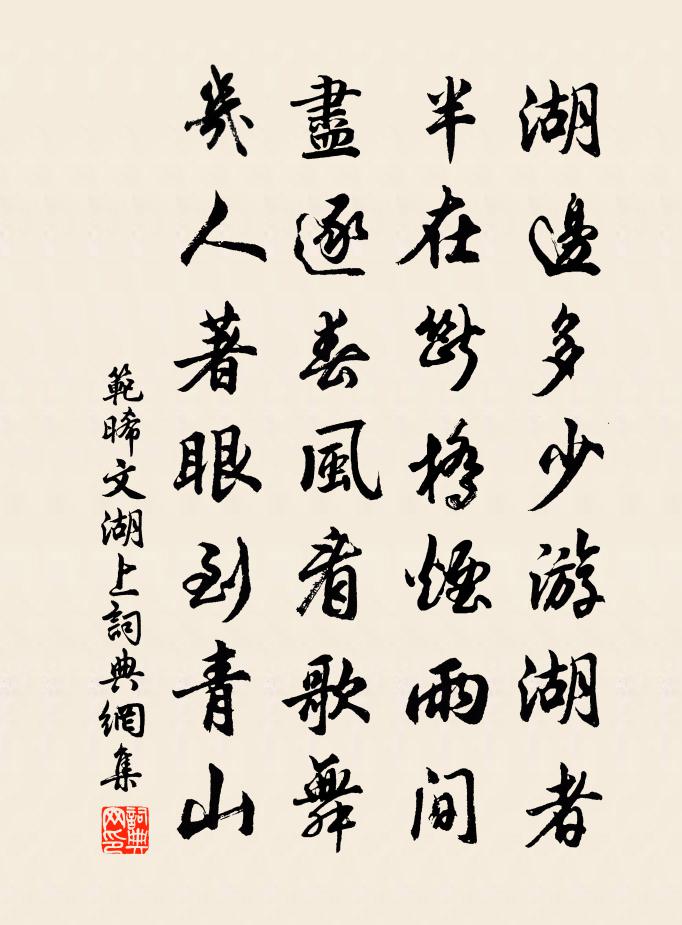 湖邊多少游湖者
半在斷橋煙雨間
盡逐春風看歌舞
幾人著眼到青山
範晞文湖上詞典網集
詞典網印